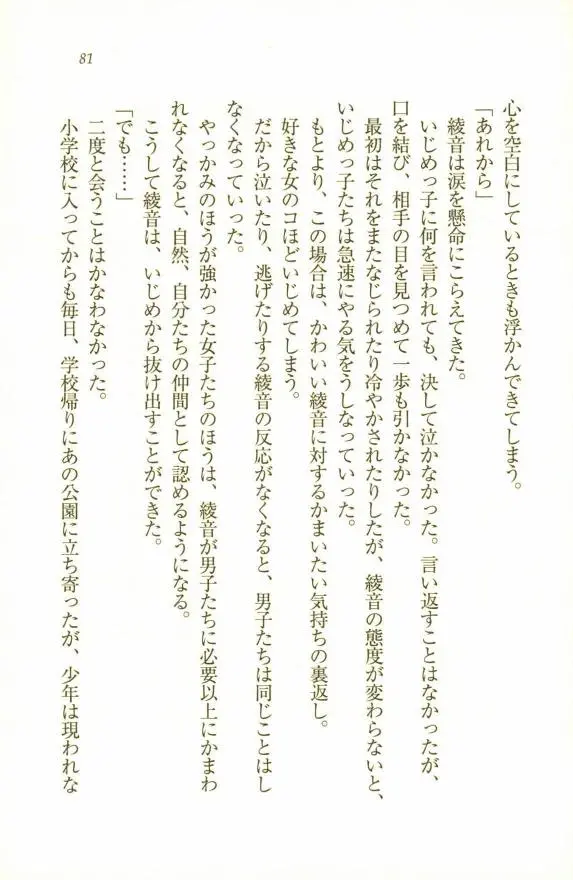 81
心を空白にしているときも浮かんできてしまう。
「あれから」
綾音は涙を懸命にこらえてきた。
いじめっ子に何を言われても、決して泣かなかった。言い返すことはなかったが、
口を結び、相手の目を見つめて一歩も引かなかった。
最初はそれをまたなじられたり冷やかされたりしたが、綾音の態度が変わらないと、
いじめっ子たちは急速にやる気をうしなっていった。
もとより、この場合は、かわいい綾音に対するかまいたい気持ちの裏返し。
好きな女のコほどいじめてしまう。
だから泣いたり、逃げたりする綾音の反応がなくなると、男子たちは同じことはし
なくなっていった。
やっかみのほうが強かった女子たちのほうは、綾音が男子たちに必要以上にかまわ
れなくなると、自然、自分たちの仲間として認めるようになる。
こうして綾音は、いじめから抜け出すことができた。
「でも……」
二度と会うことはかなわなかった。
小学校に入ってからも毎日、学校帰りにあの公園に立ち寄ったが、少年は現われな